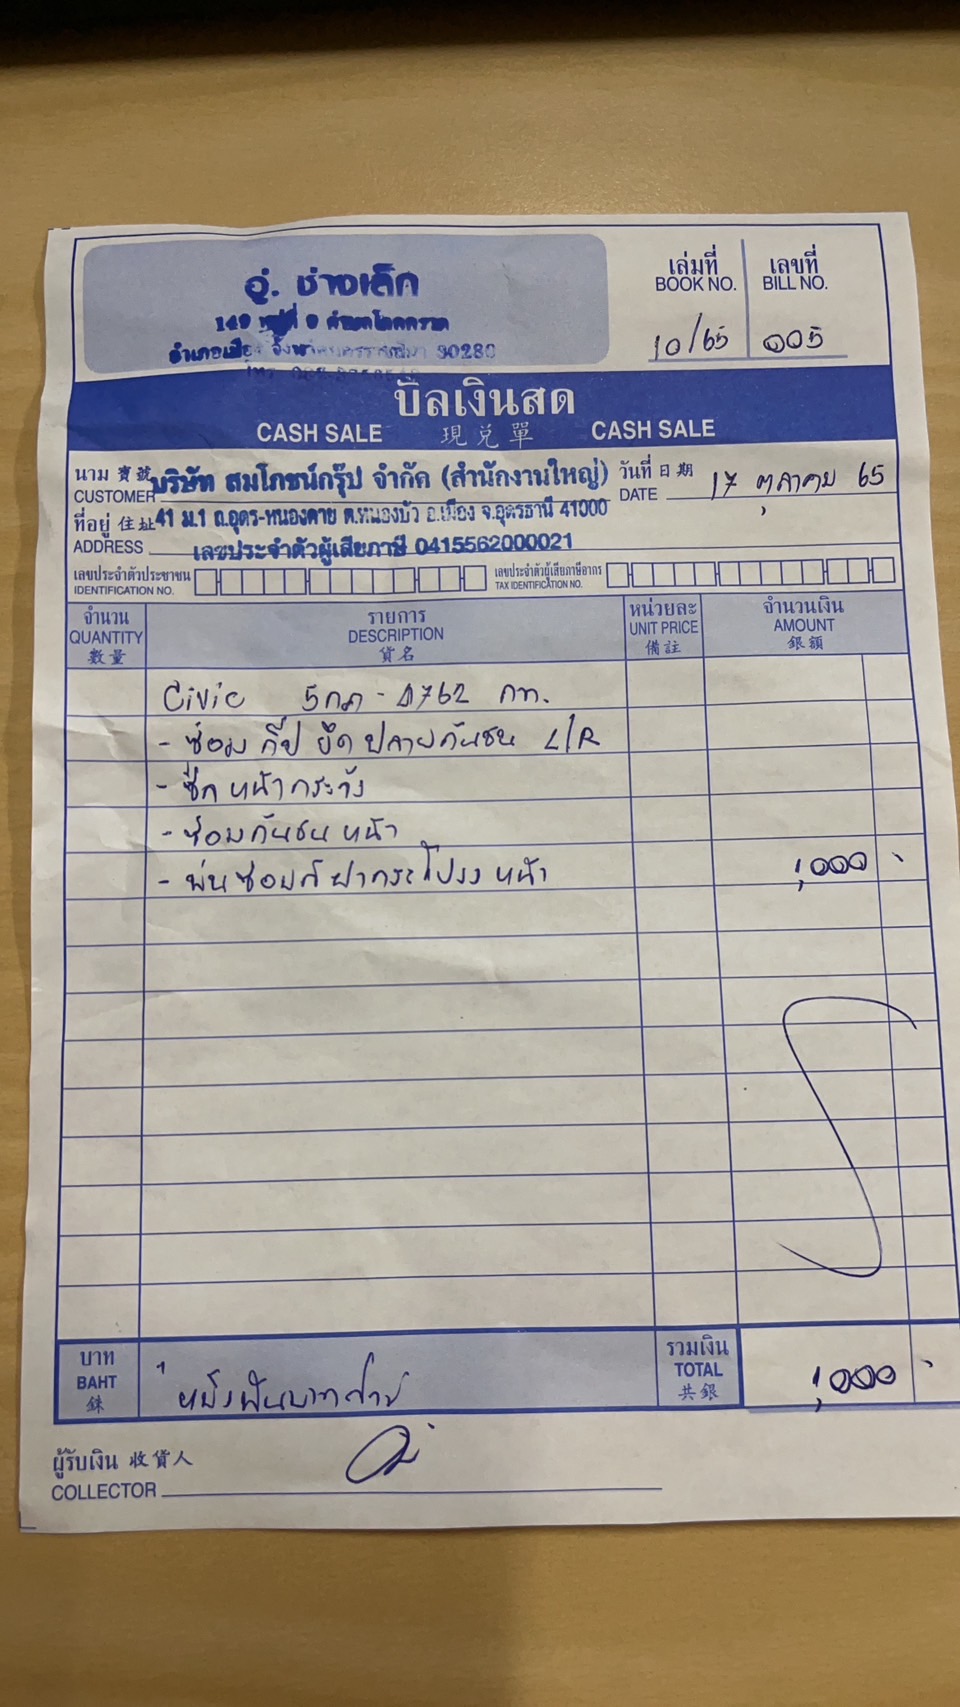 อู่. ช่างเล็ก
149 หมู่ที่ 9 ตำบลโคกกรวด
อำเภอเมือง จังหวัดนครราชสีมา 30280
โทร
เล่มที่ เลขที่
BOOK NO. BILL NO.
10/65 005
บิลเงินสด
CASH SALE 現兌單 CASH SALE
นาม 寶號 บริษัท สมโภชน์กรุ๊ป จำกัด (สำนักงานใหญ่) วันที่ 日期 17 ตุลาคม 65
CUSTOMER DATE
ที่อยู่ 住址 41 ม.1 ถ.อุดร-หนองคาย ต.หนองบัว อ.เมือง จ.อุดรธานี 41000
ADDRESS เลขประจำตัวผู้เสียภาษี 0415562000021
เลขประจำตัวประชาชน เลขประจำตัวผู้เสียภาษีอากร
IDENTIFICATION NO. TAX IDENTIFICATION NO.
จำนวน รายการ หน่วยละ จำนวนเงิน
QUANTITY DESCRIPTION UNIT PRICE AMOUNT
數量 貨名 備註 銀額
Civic 5กภ - 4762 กท.
- ซ่อม กิ๊ป ยึด ปลายกันชน L/R
- ซีก หน้ากระจัง
- ซ่อมกันชน หน้า
- พ่นซ่อมสี ฝากระโปรง หน้า 1,000 -
บาท รวมเงิน
BAHT หนึ่งพันบาทถ้วน TOTAL 1,000 -
銖 共銀
ผู้รับเงิน 收貨人
COLLECTOR